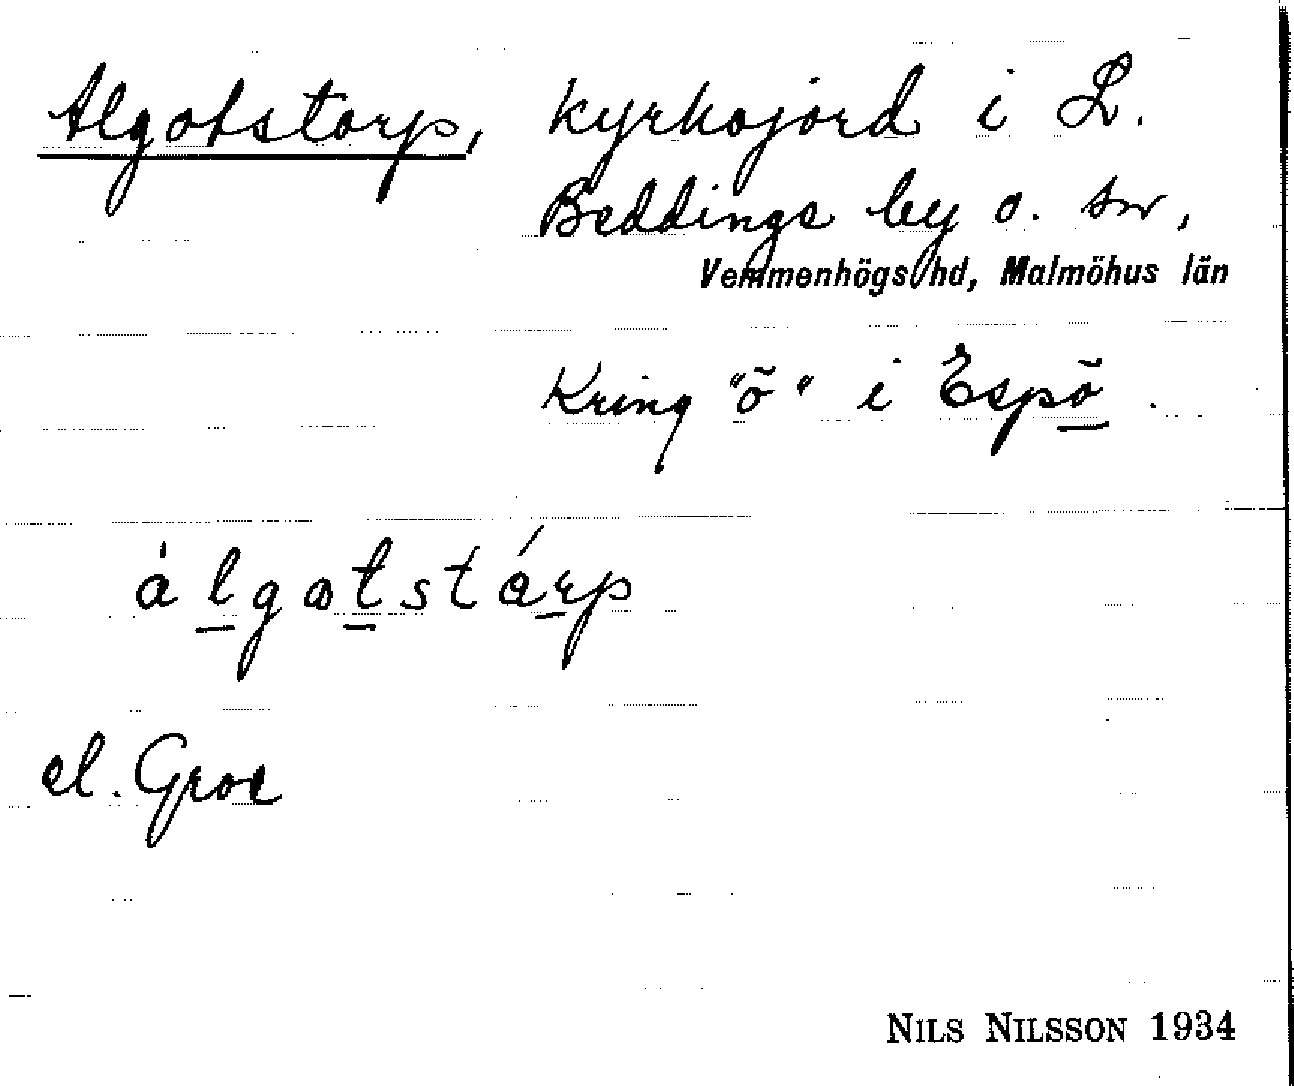 Algotstorp, kyrkojord i L.
Beddinge by o. sn,
Vemmenhögs hd, Malmöhus län
Kring "õ" i Espõ.
álgotstárp
el. Groe
NILS NILSSON 1934